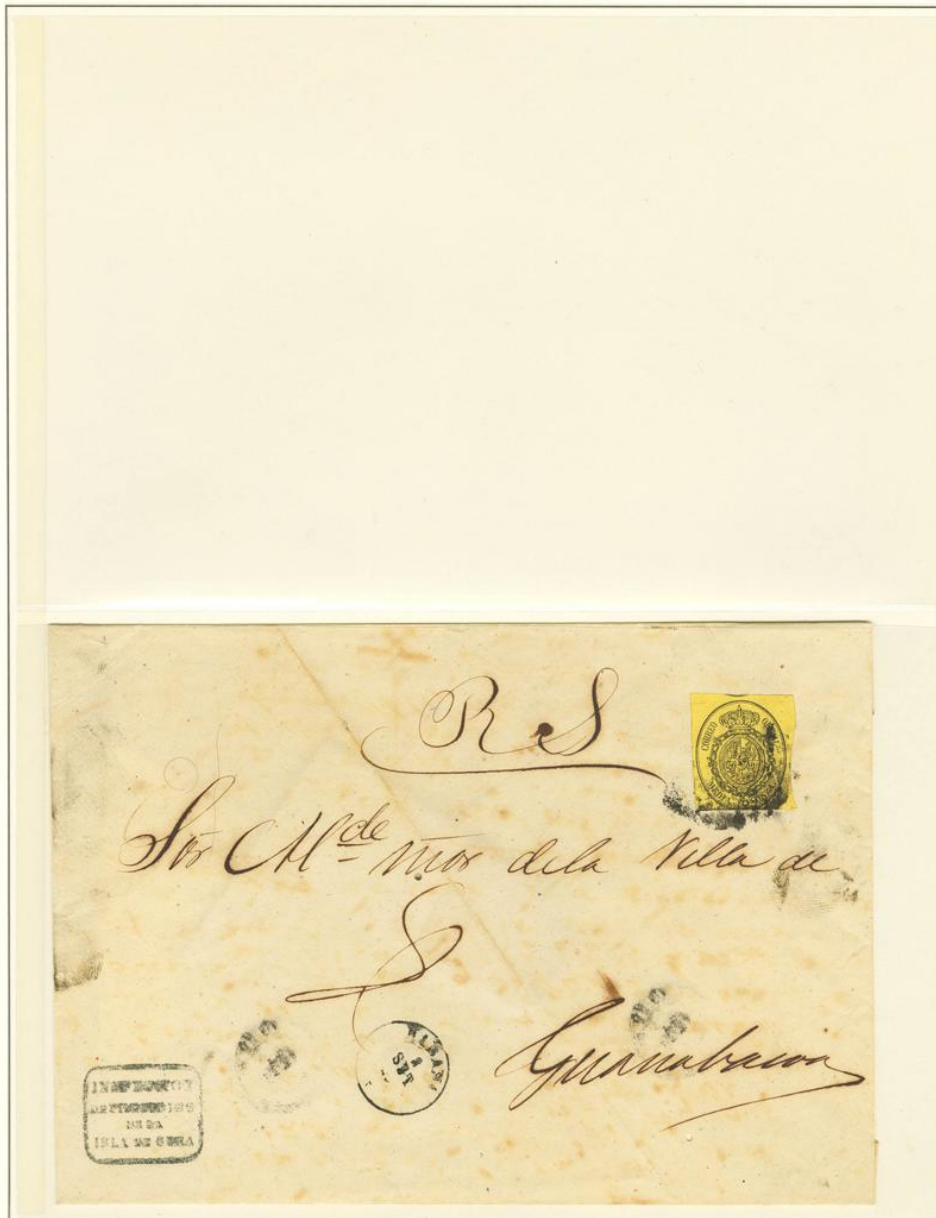 R. S
CORREO
Sor Alde mor dela Villa de
Guanabacoa
HABANA
SET
INSPECCION
DE LA
ISLA DE CUBA